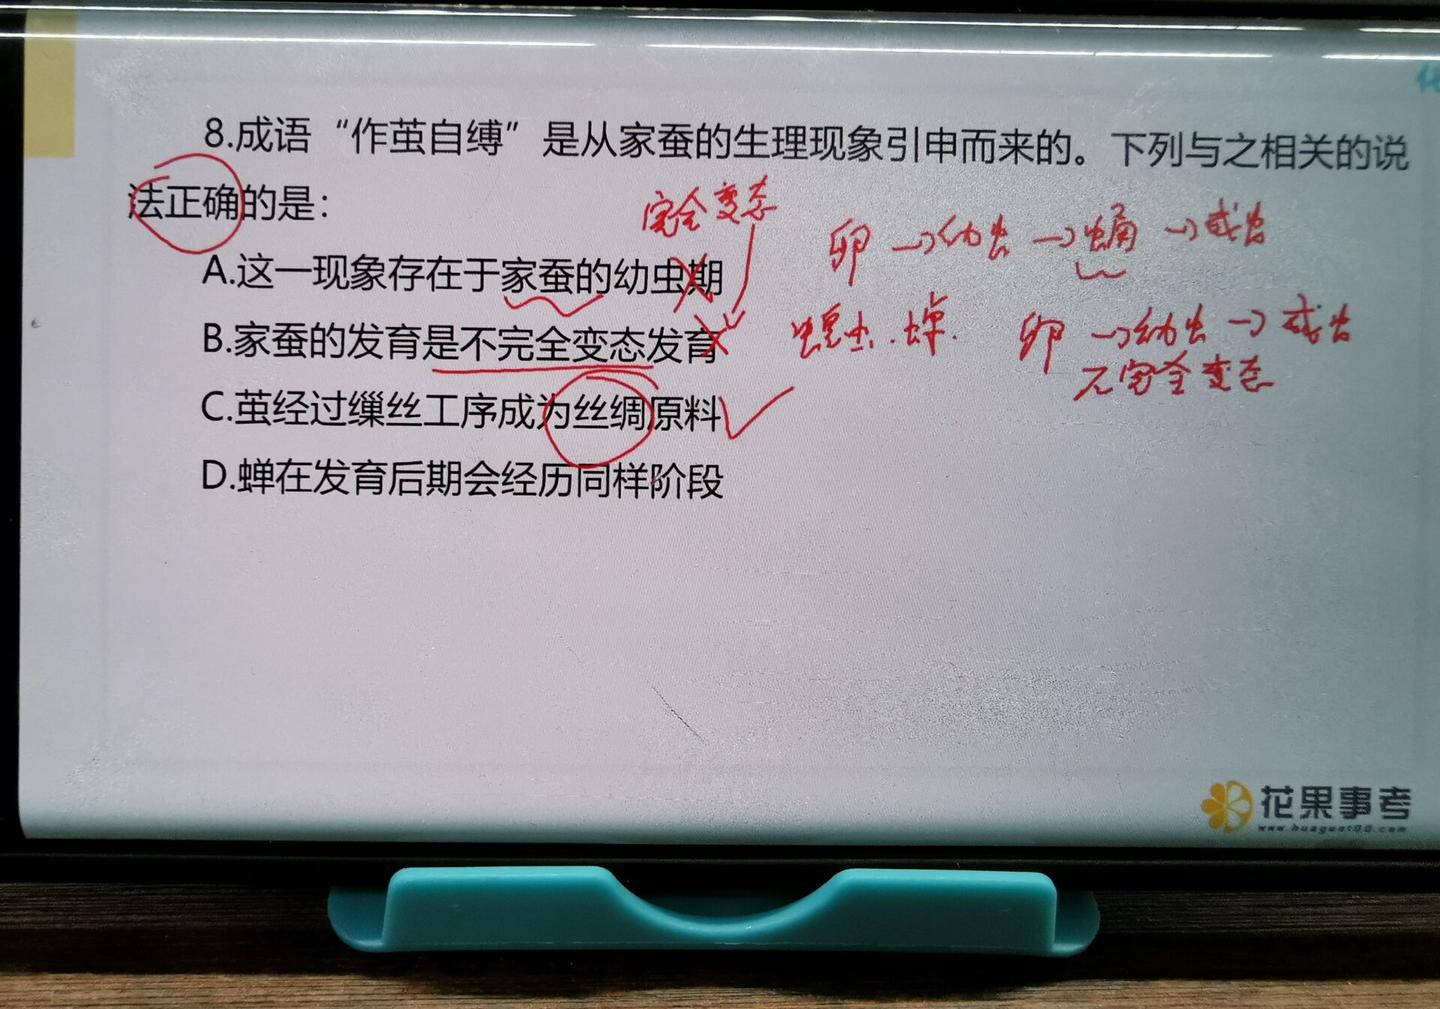 8.成语“作茧自缚”是从家蚕的生理现象引申而来的。下列与之相关的说
法正确的是：
完全变态
卵→幼虫→蛹→成虫
A.这一现象存在于家蚕的幼虫期
B.家蚕的发育是不完全变态发育
蝗虫.蝉.
卵→幼虫→成虫
不完全变态
C.茧经过缫丝工序成为丝绸原料
D.蝉在发育后期会经历同样阶段
花果事考
www.huaguo100.com